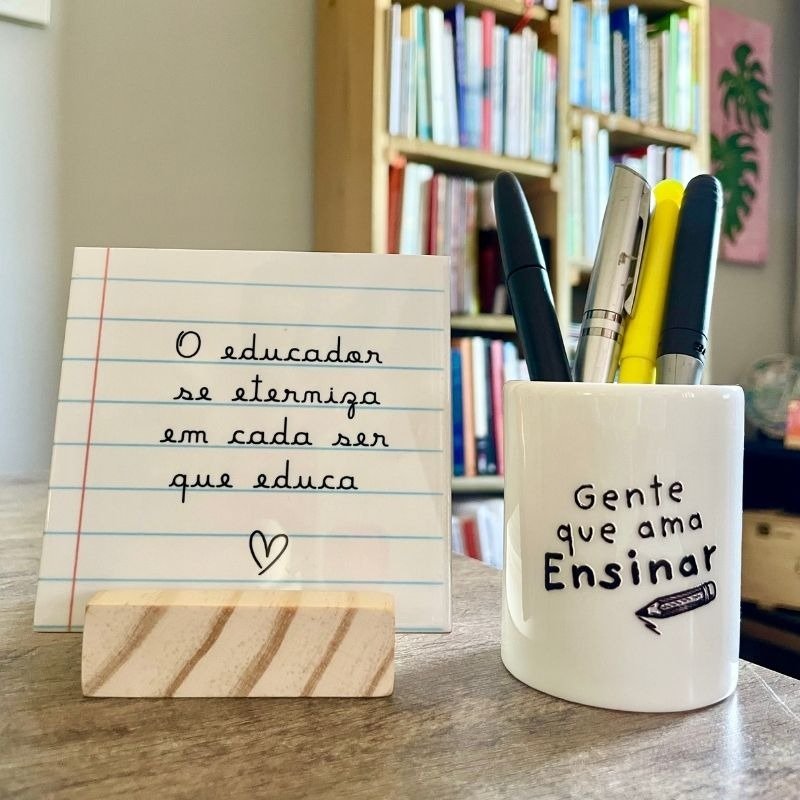 O educador
se eterniza
em cada ser
que educa
Gente
que ama
Ensinar